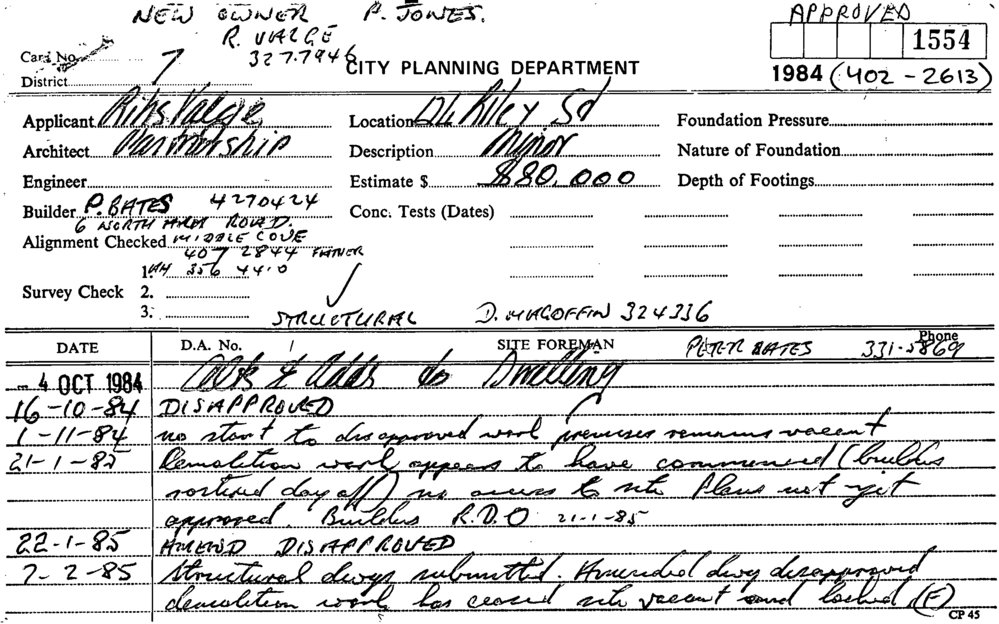 NEW OWNER P. JONES.
APPROVED
R. VALGE
327.7946
1554
Card No.
7
CITY PLANNING DEPARTMENT
1984 (402 - 2613)
District
Applicant Location Riley St Foundation Pressure
Architect Partnership Description Minor Nature of Foundation
Engineer Estimate $ $80,000 Depth of Footings
Builder P. BATES 4270424 Conc. Tests (Dates)
6 NORTH ARM ROAD.
Alignment Checked MIDDLE COVE
407 2844 FATHER
1. 356 44.0
Survey Check 2.
3. STRUCTURAL D. MAGOFFIN 324336
DATE D.A. No. SITE FOREMAN PETER BATES Phone 331-5869
4 OCT 1984 Alts & Adds to Dwelling
16-10-84 DISAPPROVED
1-11-84 no start to disapproved work premises remains vacant
21-1-85 Demolition work appears to have commenced (builders
rostered day off) no access to site Plans not yet
approved. Builders R.D.O 21-1-85
22-1-85 AMEND DISAPPROVED
7-2-85 Structural dwgs submitted. Amended dwg disapproved
demolition work has ceased site vacant and locked. (F)
CP 45